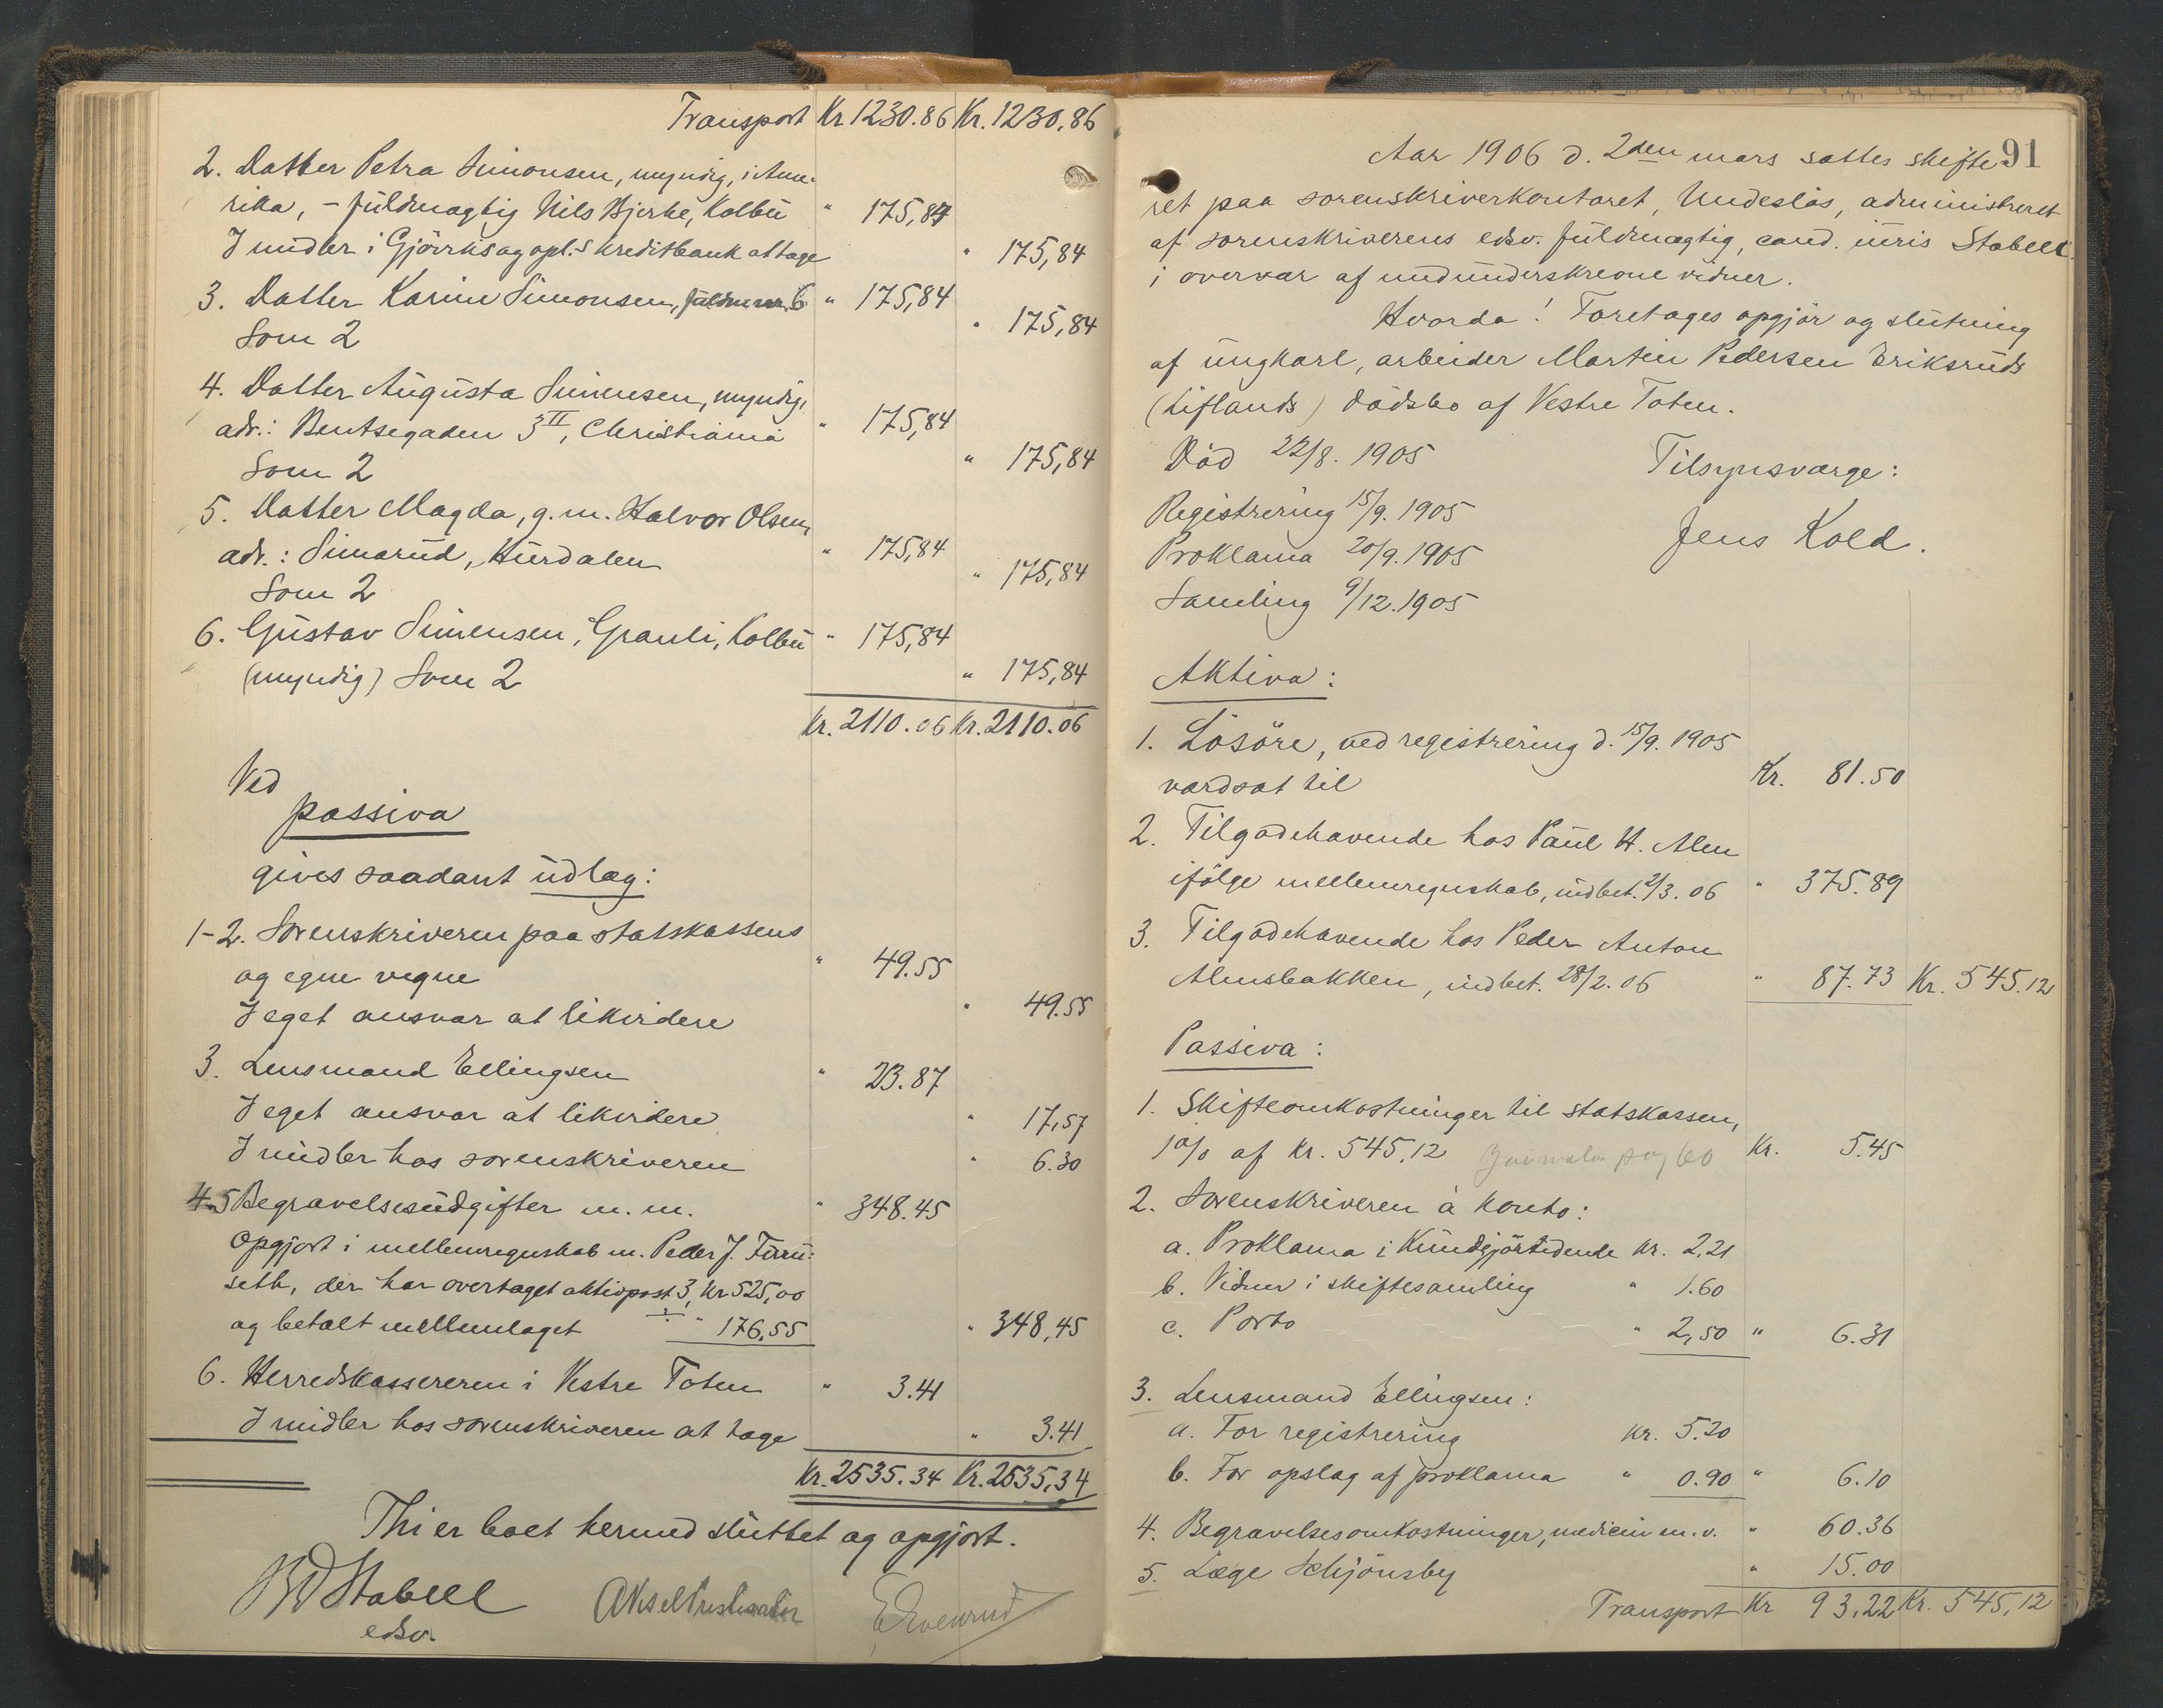 Transport Kr 1230.86 Kr. 1230.86
2. Datter Petra Simonsen, myndig, i Ame-
rika, - fuldmægtig Nils Bjerke, Kolbu " 175,84
I midler i Gjøvriks og opl.s kreditbank at tage " 175,84
3. Datter Karine Simonsen, fuldm. nr. 6 " 175,84
Som 2 " 175,84
4. Datter Augusta Simensen, myndig,
adr.: Bentsegaden 3 II, Christiania " 175,84
Som 2 " 175,84
5. Datter Magda, g. m. Halvor Olsen,
adr.: Simarud, Hurdalen " 175,84
Som 2 " 175,84
6. Gustav Simensen, Granli, Kolbu " 175,84
(myndig) Som 2 " 175,84
Kr. 2110.06 Kr. 2110.06
Ved
passiva
gives saadant udlæg:
1-2. Sorenskriveren paa statskassens
og egne vegne " 49.55
I eget ansvar at likvidere " 49.55
3. Lensmand Ellingsen " 23.87
I eget ansvar at likvidere " 17,57
I midler hos sorenskriveren " 6.30
4-5 Begravelsesudgifter m. m. " 348.45
Opgjort i mellemregnskab m. Peder J.
seth, der har overtaget aktivpost 3, Kr 525,00
og betalt mellemlaget ÷ " 176,55 " 348,45
6. Herredskassereren i Vestre Toten " 3.41
I midler hos sorenskriveren at tage " 3.41
Kr. 2535.34 Kr. 2535,34
Thi er boet hermed sluttet og opgjort.
Stabell
edsv.
91
Aar 1906 d. 2den mars sattes skifte-
ret paa sorenskriverkontoret, Undeslös, administreret
af sorenskriverens edsv. fuldmægtig, cand. juris Stabell
i overvær af medunderskrevne vidner.
Hvorda! Foretages opgjör og slutning
af ungkarl, arbeider Martin Pedersen Eriksruds
(Liflands) dödsbo af Vestre Toten.
Död 22/8. 1905 Tilsynsværge:
Registrering 15/9. 1905
Jens Kold.
Proklama 20/9. 1905
Samling 9/12. 1905
Aktiva:
1. Lösöre, ved registrering d. 15/9. 1905
værdsat til Kr. 81.50
2. Tilgodehavende hos Paul H. Alm
ifölge mellemregnskab, indbet. 2/3. 06 " 375.89
3. Tilgodehavende hos Peder Anton
Almsbakken, indbet. 28/2. 06 " 87.73 Kr. 545.12
Passiva:
1. Skifteomkostninger til statskassen,
1 0/0 af Kr. 545,12 Kr. 5.45
2. Sorenskriveren à konto:
a. Proklama i Kundgjörtidende Kr. 2,21
b. Vidner i skiftesamling " 1.60
c. Porto " 2,50 " 6.31
3. Lensmand Ellingsen:
a. For registrering Kr. 5.20
b. For opslag af proklama " 0.90 " 6.10
4. Begravelsesomkostninger, medicin m. v. " 60.36
5. Læge Schjönsby " 15.00
Transport Kr 93,22 Kr. 545,12